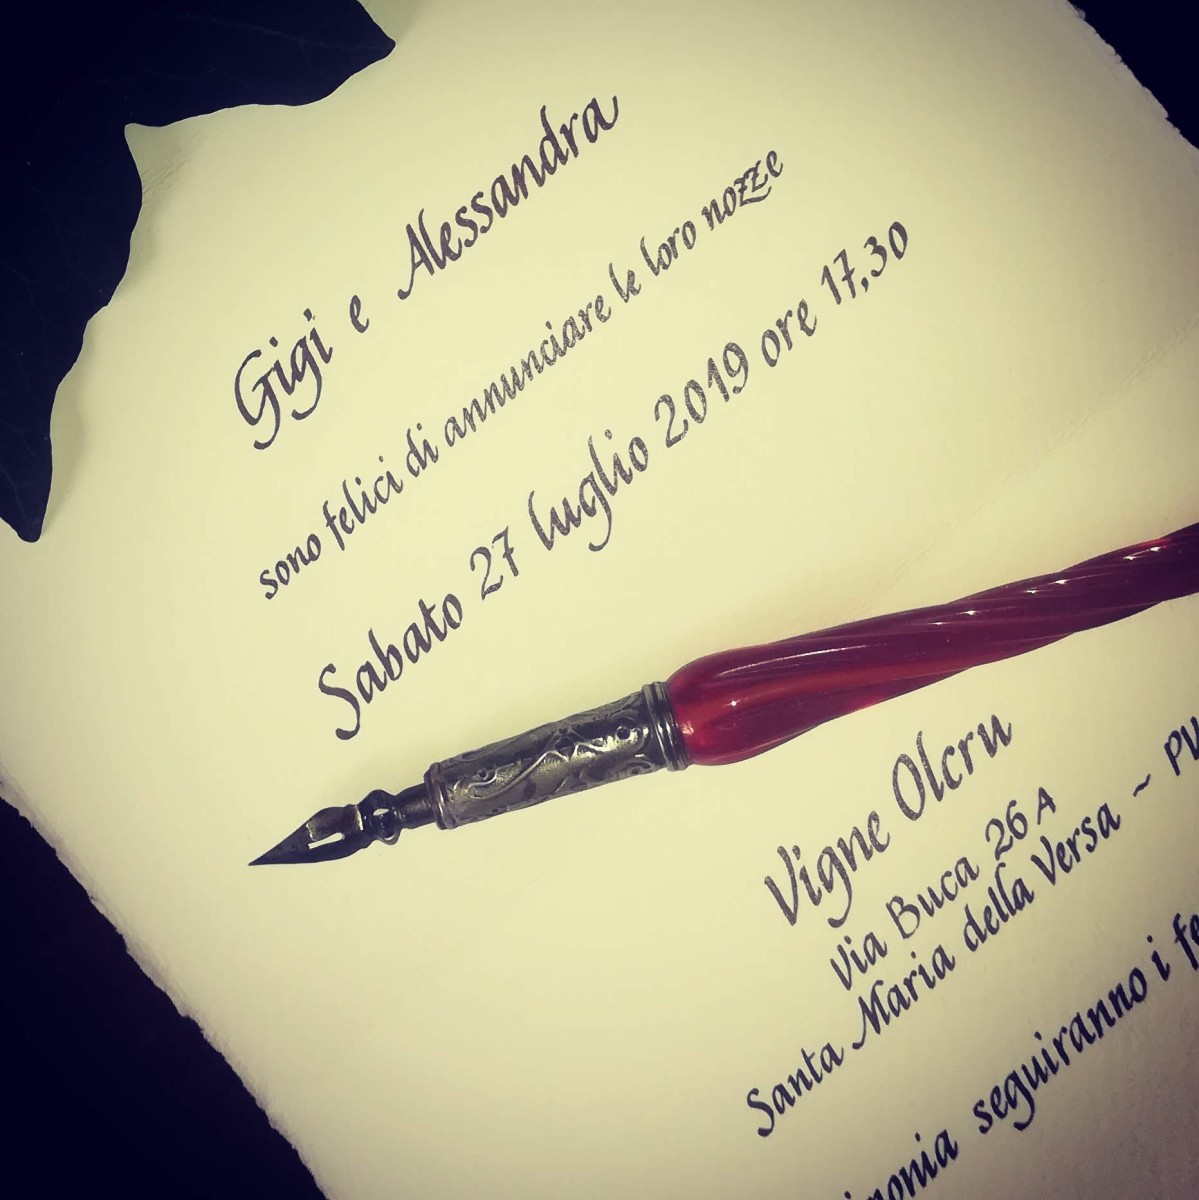 Gigi e Alessandra
sono felici di annunciare le loro nozze
Sabato 27 luglio 2019 ore 17,30
Vigne Olcru
Via Buca 26 A
Santa Maria della Versa ~ PV
seguiranno i